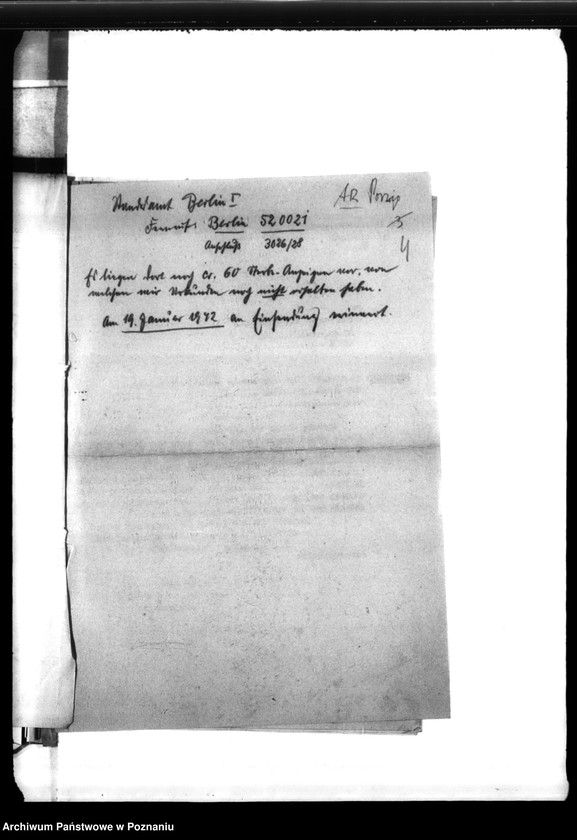 Standesamt Berlin I
AR
5
4
Fernruf: Berlin 52 0021
Anschluß 3026/28
Es liegen dort noch ca. 60 Sterbe-Anzeigen vor, von
welchen wir Urkunden noch nicht erhalten haben.
Am 19. Januar 1942 an Einsendung erinnert.
Archiwum Państwowe w Poznaniu